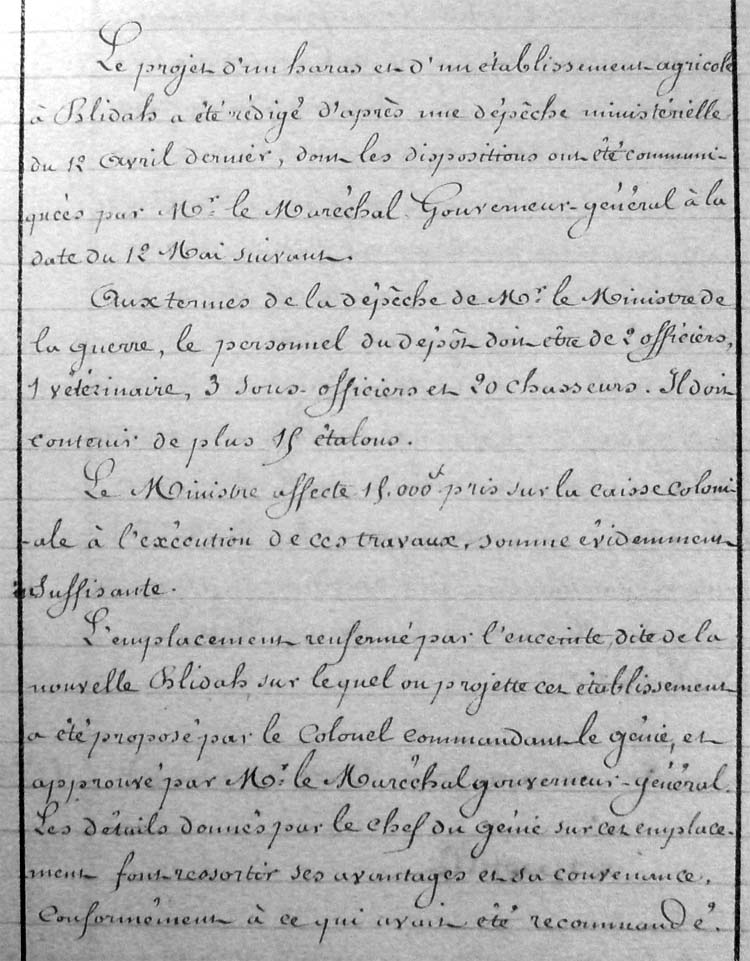 Le projet d'un haras et d'un établissement agricole
à Blidah a été rédigé d'après une dépêche ministérielle
du 12 Avril dernier, dont les dispositions ont été communi-
quées par Mr. le Maréchal Gouverneur-général à la
date du 12 Mai suivant.
Aux termes de la dépêche de Mr. le Ministre de
la guerre, le personnel du dépôt doit être de 2 officiers,
1 vétérinaire, 3 sous-officiers et 20 chasseurs. Il doit
contenir de plus 15 étalons.
Le Ministre affecte 15.000f pris sur la caisse coloni-
-ale à l'exécution de ces travaux, somme évidemment
insuffisante.
L'emplacement renfermé par l'enceinte, dite de la
nouvelle Blidah, sur lequel on projette cet établissement
a été proposé par le Colonel commandant le génie, et
approuvé par Mr. le Maréchal gouverneur-général.
Les détails donnés par le chef du génie sur cet emplace-
-ment font ressortir ses avantages et sa convenance.
Conformément à ce qui avait été recommandé.